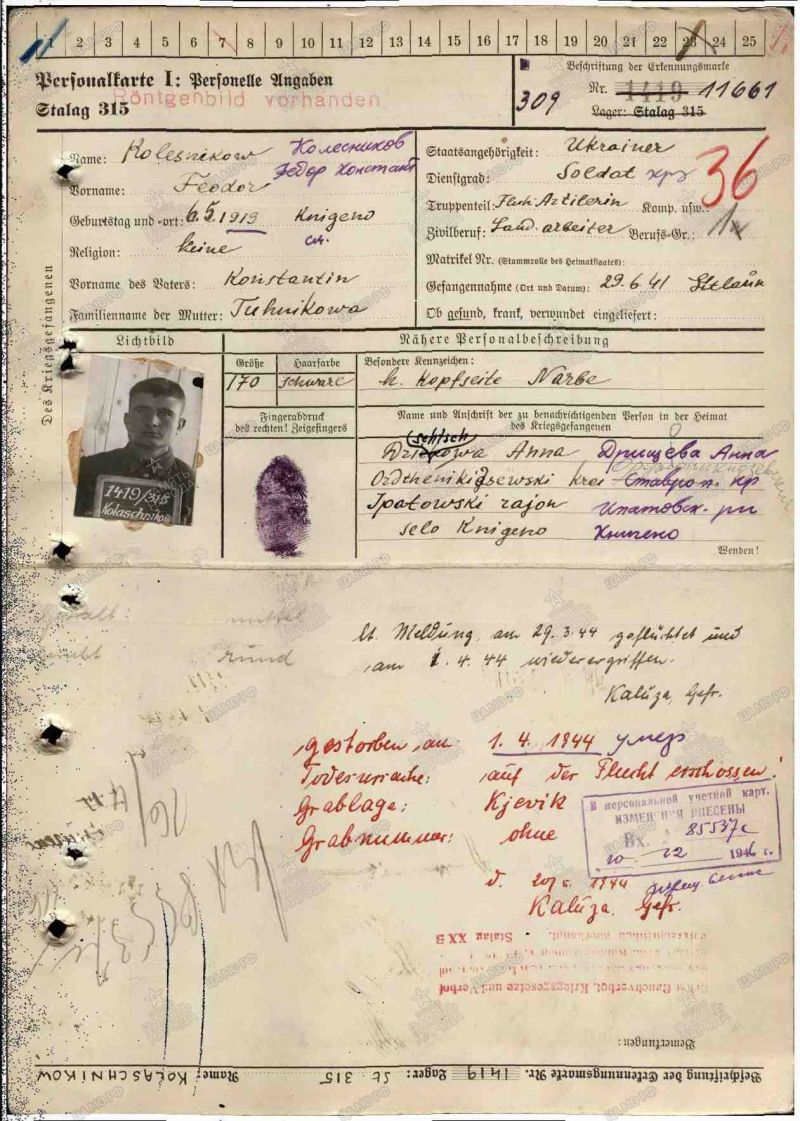 1 2 3 4 5 6 7 8 9 10 11 12 13 14 15 16 17 18 19 20 21 22 23 24 25
Personalkarte I: Personelle Angaben
Stalag 315
Röntgenbild vorhanden
309
Beschriftung der Erkennungsmarke
Nr. 1419 11661
Lager: Stalag 315
Des Kriegsgefangenen
Name: Kolesnikow Колесников
Vorname: Feodor Федор Констант
Geburtstag und -ort: 6.5.1919 Knigeno
Religion: keine
Vorname des Vaters: Konstantin
Familienname der Mutter: Tuhnikowa
Staatsangehörigkeit: Ukrainer
Dienstgrad: Soldat
36
Truppenteil: Artilerin Komp. usw.:
Zivilberuf: Land-arbeiter Berufs-Gr.:
Matrikel Nr. (Stammrolle des Heimatstaates):
Gefangennahme (Ort und Datum): 29.6.41
Ob gesund, krank, verwundet eingeliefert:
Lichtbild
Nähere Personalbeschreibung
Größe Haarfarbe Besondere Kennzeichen:
170 schwarz Kopfseite Narbe
Fingerabdruck
des rechten! Zeigefingers
Name und Anschrift der zu benachrichtigenden Person in der Heimat
des Kriegsgefangenen
Anna Анна
krei Ставроп. кр
Ipatowski rajon Ипатовск. рн
selo Knigeno
1419/315
Kolaschnikow
Wenden!
mittel
rund
lt. Meldung am 29.3.44 geflüchtet und
am 1.4.44 wiederergriffen.
Kaluza, Gefr.
gestorben am: 1.4.1944 умер
Todesursache: auf der Flucht erschossen!
Grablage: Kjevik
Grabnummer: ohne
В персональной учетной карт.
ИЗМЕНЕНИЯ ВНЕСЕНЫ
Вх. 85537с
10 12 1946 г.
1944
Kaluza, Gefr.
Stalag XX B
Bemerkungen:
Beschriftung der Erkennungsmarke Nr. 1419 Lager: St. 315 Name: KOLASCHNIKOW